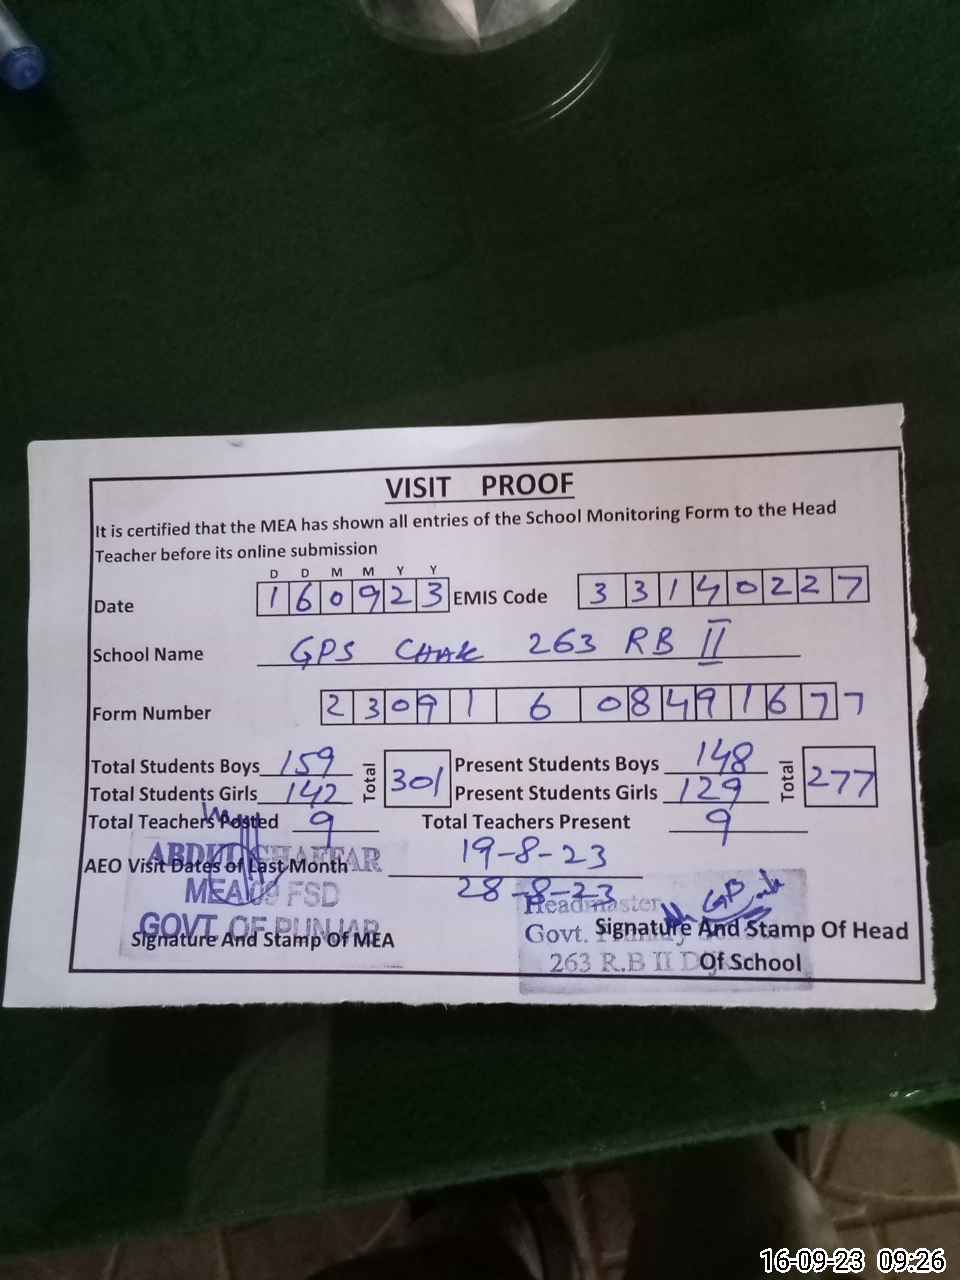 VISIT PROOF
It is certified that the MEA has shown all entries of the School Monitoring Form to the Head
Teacher before its online submission
D D M M Y Y
Date 160923 EMIS Code 33140227
School Name GPS CHAK 263 RB II
Form Number 23091608491677
Total Students Boys 159 Total 301 Present Students Boys 148 Total 277
Total Students Girls 142 Present Students Girls 129
Total Teachers Posted 9 Total Teachers Present 9
AEO Visit Dates of Last Month 19-8-23
28-8-23
ABDUL GHAFFAR
MEA 09 FSD
GOVT OF PUNJAB
Signature And Stamp Of MEA
Headmaster
Govt. Primary
263 R.B II
Signature And Stamp Of Head
Of School
16-09-23 09:26